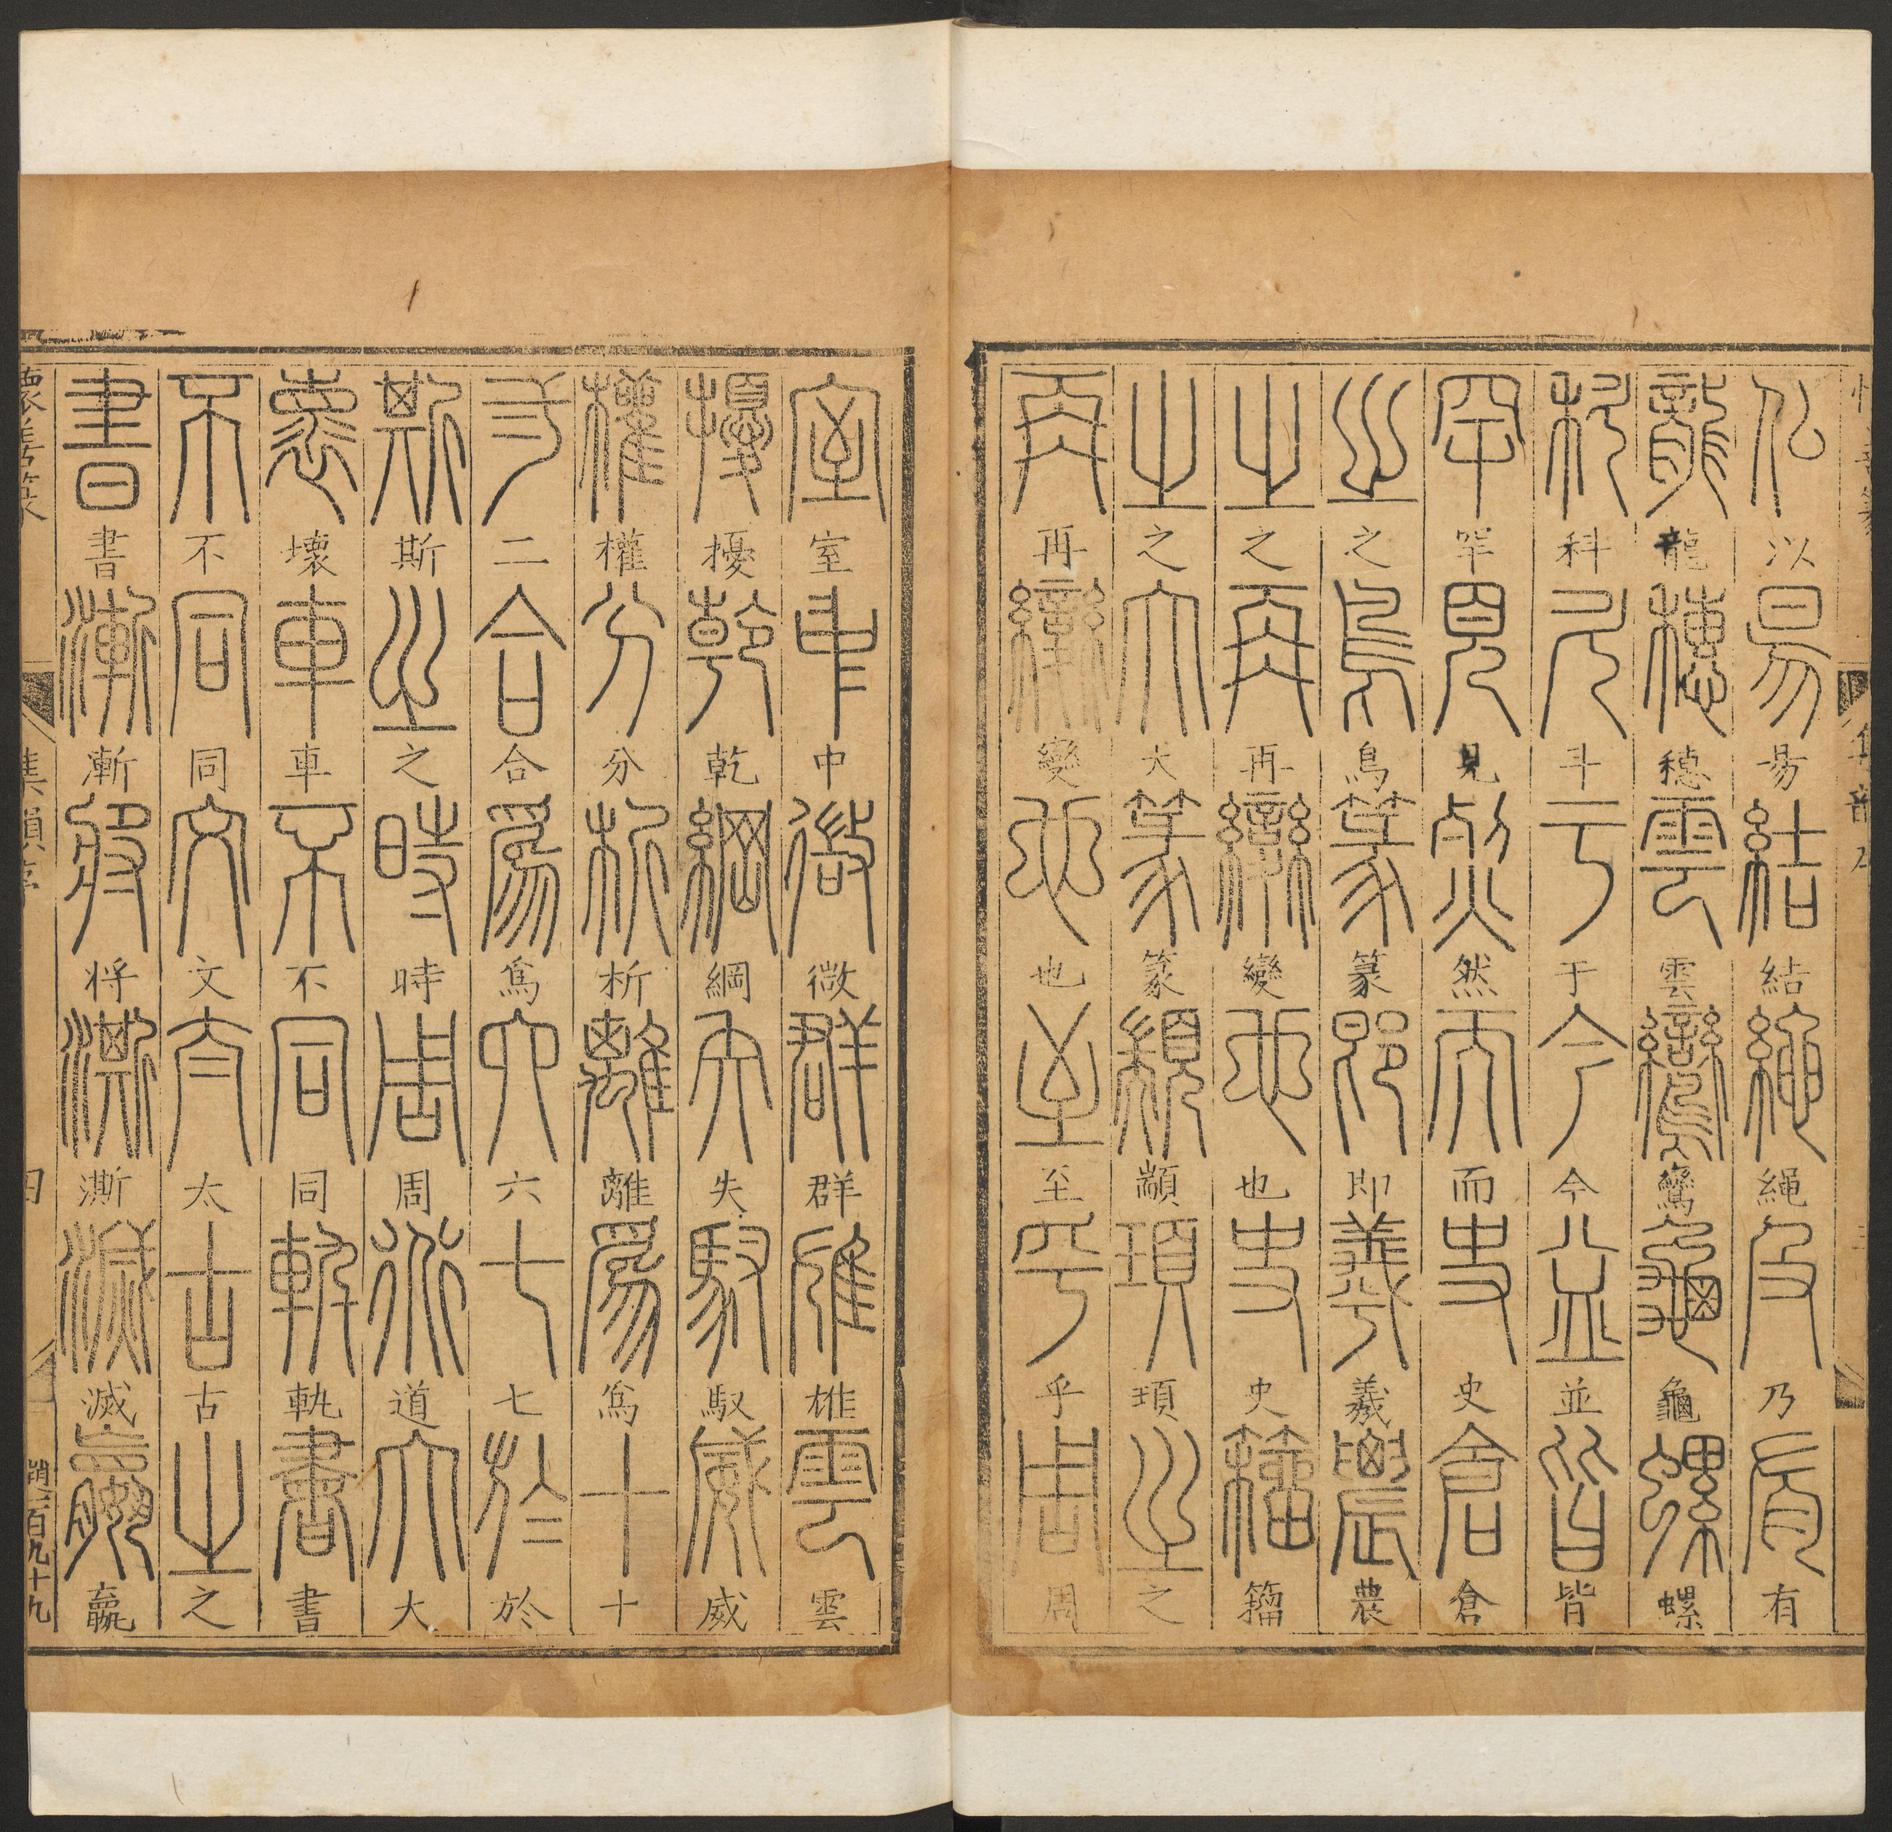 以易結繩乃有
龍穗雲鸞龜螺
科斗于今並皆
罕見然而史倉
之鳥篆即羲農
之再變也史籀
之大篆顓頊之
再變也至乎周
室中微群雄雲
擾乾綱失馭威
權分析離爲十
二合爲六七於
斯之時周道大
壞車不同軌書
不同文太古之
書漸將澌滅嬴
懷善篆
集韻序
四